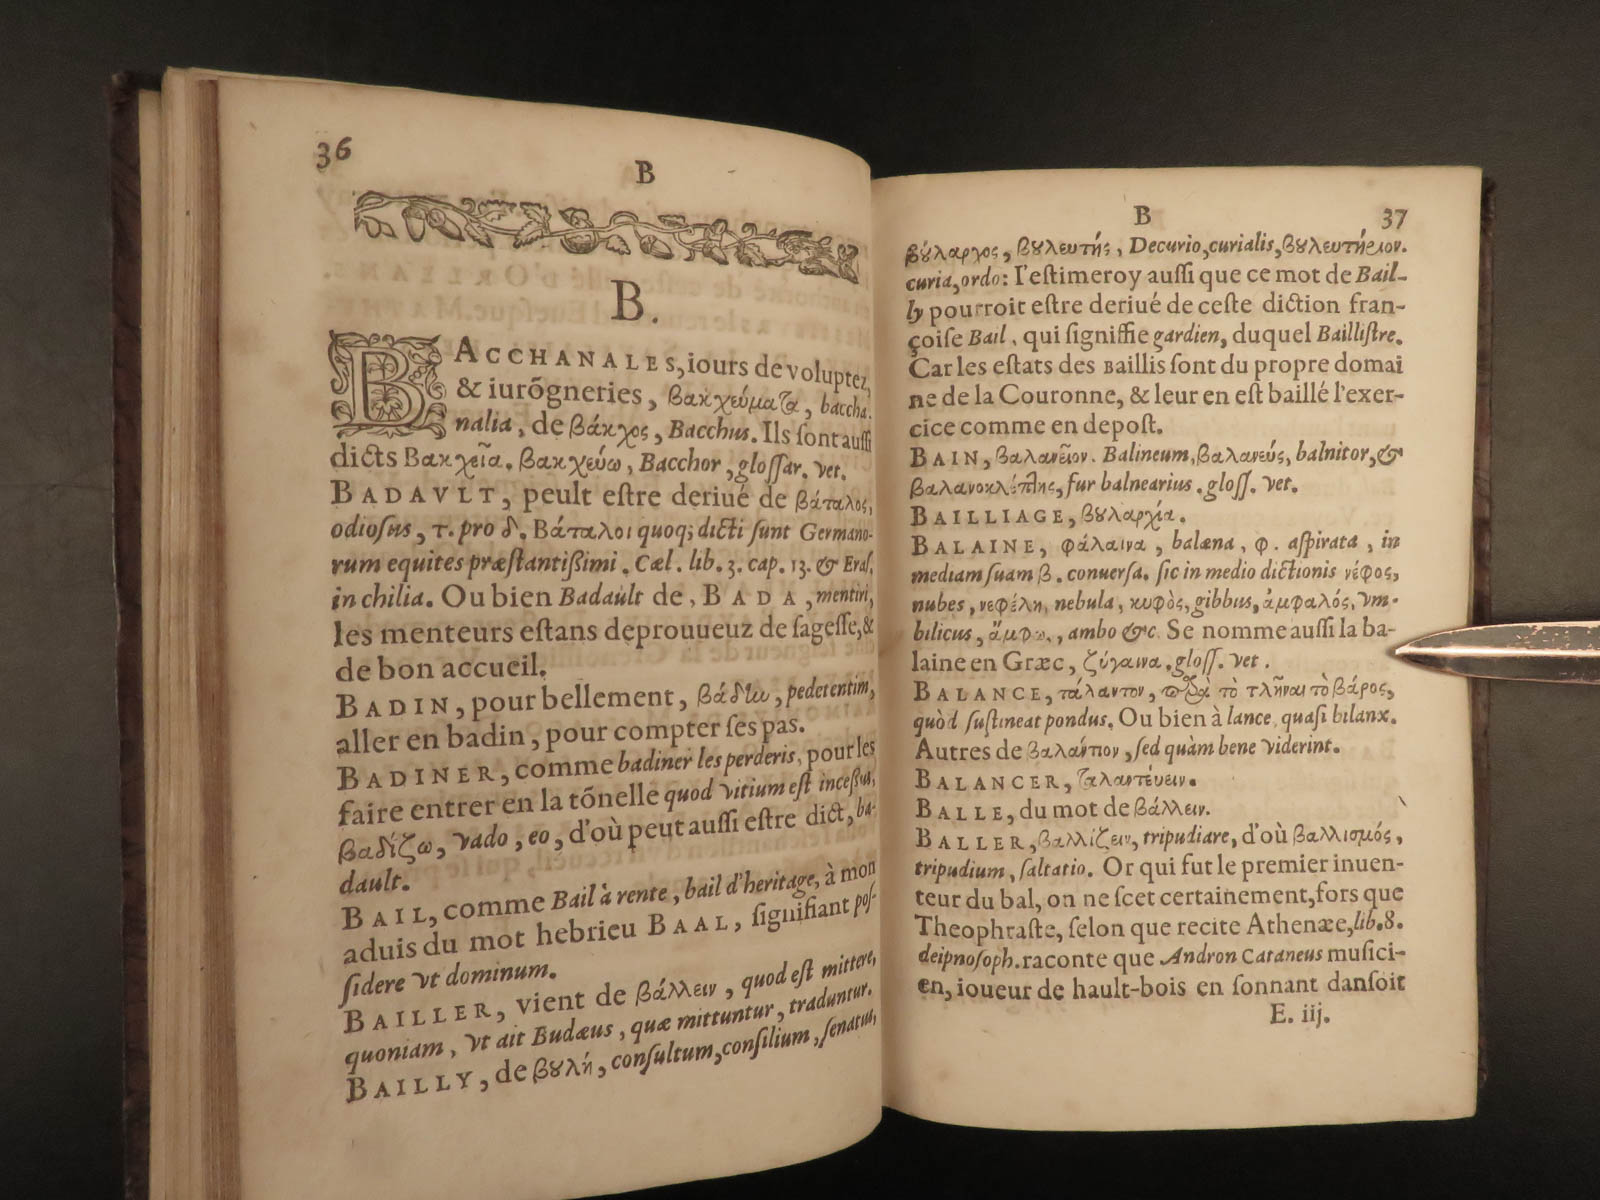 36
B
B.
BACCHANALES, iours de voluptez,
& iurõgneries, βακχεύματα, baccha-
nalia, de βάκχος, Bacchus. Ils sont aussi
dicts Βακχεῖα. βακχεύω, Bacchor, glossar. vet.
BADAVLT, peult estre deriué de βάταλος,
odiosus, τ. pro δ. Βάταλοι quoq; dicti sunt Germano-
rum equites præstantißimi. Cæl. lib. 3. cap. 13. & Eras.
in chilia. Ou bien Badault de, BADA, mentiri,
les menteurs estans deprouueuz de sagesse, &
de bon accueil.
BADIN, pour bellement, βάδην, pedetentim,
aller en badin, pour compter ses pas.
BADINER, comme badiner les perderis, pour les
faire entrer en la tõnelle quod vitium est inceßus,
βαδίζω, vado, eo, d'où peut aussi estre dict, ba-
dault.
BAIL, comme Bail à rente, bail d'heritage, à mon
aduis du mot hebrieu BAAL, signifiant pos-
sidere vt dominum.
BAILLER, vient de βάλλειν, quod est mittere,
quoniam, vt ait Budæus, quæ mittuntur, traduntur.
BAILLY, de βουλή, consultum, consilium, senatus,
B
37
βούλαρχος, βουλευτής, Decurio, curialis, βουλευτήριον.
curia, ordo: I'estimeroy aussi que ce mot de Bail-
ly pourroit estre deriué de ceste diction fran-
çoise Bail, qui signiffie gardien, duquel Baillistre.
Car les estats des Baillis sont du propre domai
ne de la Couronne, & leur en est baillé l'exer-
cice comme en depost.
BAIN, βαλανεῖον. Balineum, βαλανεύς, balnitor, &
βαλανοκλέπτης, fur balnearius. gloss. vet.
BAILLIAGE, βουλαρχία.
BALAINE, φάλαινα, balæna, φ. aspirata, in
mediam suam β. conuersa. sic in medio dictionis νέφος,
nubes, νεφέλη, nebula, κυφὸς, gibbus, ἀμφαλός, vm-
bilicus, ἄμφω, ambo &c. Se nomme aussi la ba-
laine en Græc, ζύγαινα. gloss. vet.
BALANCE, τάλαντον, παρὰ τὸ τλῆναι τὸ βάρος,
quòd sustineat pondus. Ou bien à lance, quasi bilanx.
Autres de βαλάντιον, sed quàm bene viderint.
BALANCER, ταλαντέυειν.
BALLE, du mot de βάλλειν.
BALLER, βαλλίζειν, tripudiare, d'où βαλλισμός,
tripudium, saltatio. Or qui fut le premier inuen-
teur du bal, on ne scet certainement, fors que
Theophraste, selon que recite Athenæe, lib. 8.
deipnosoph. raconte que Andron Cataneus musici-
en, ioueur de hault-bois en sonnant dansoit
E. iij.